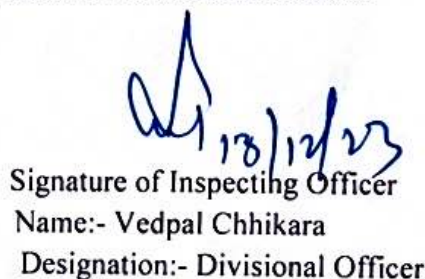 18/12/23
Signature of Inspecting Officer
Name:- Vedpal Chhikara
Designation:- Divisional Officer